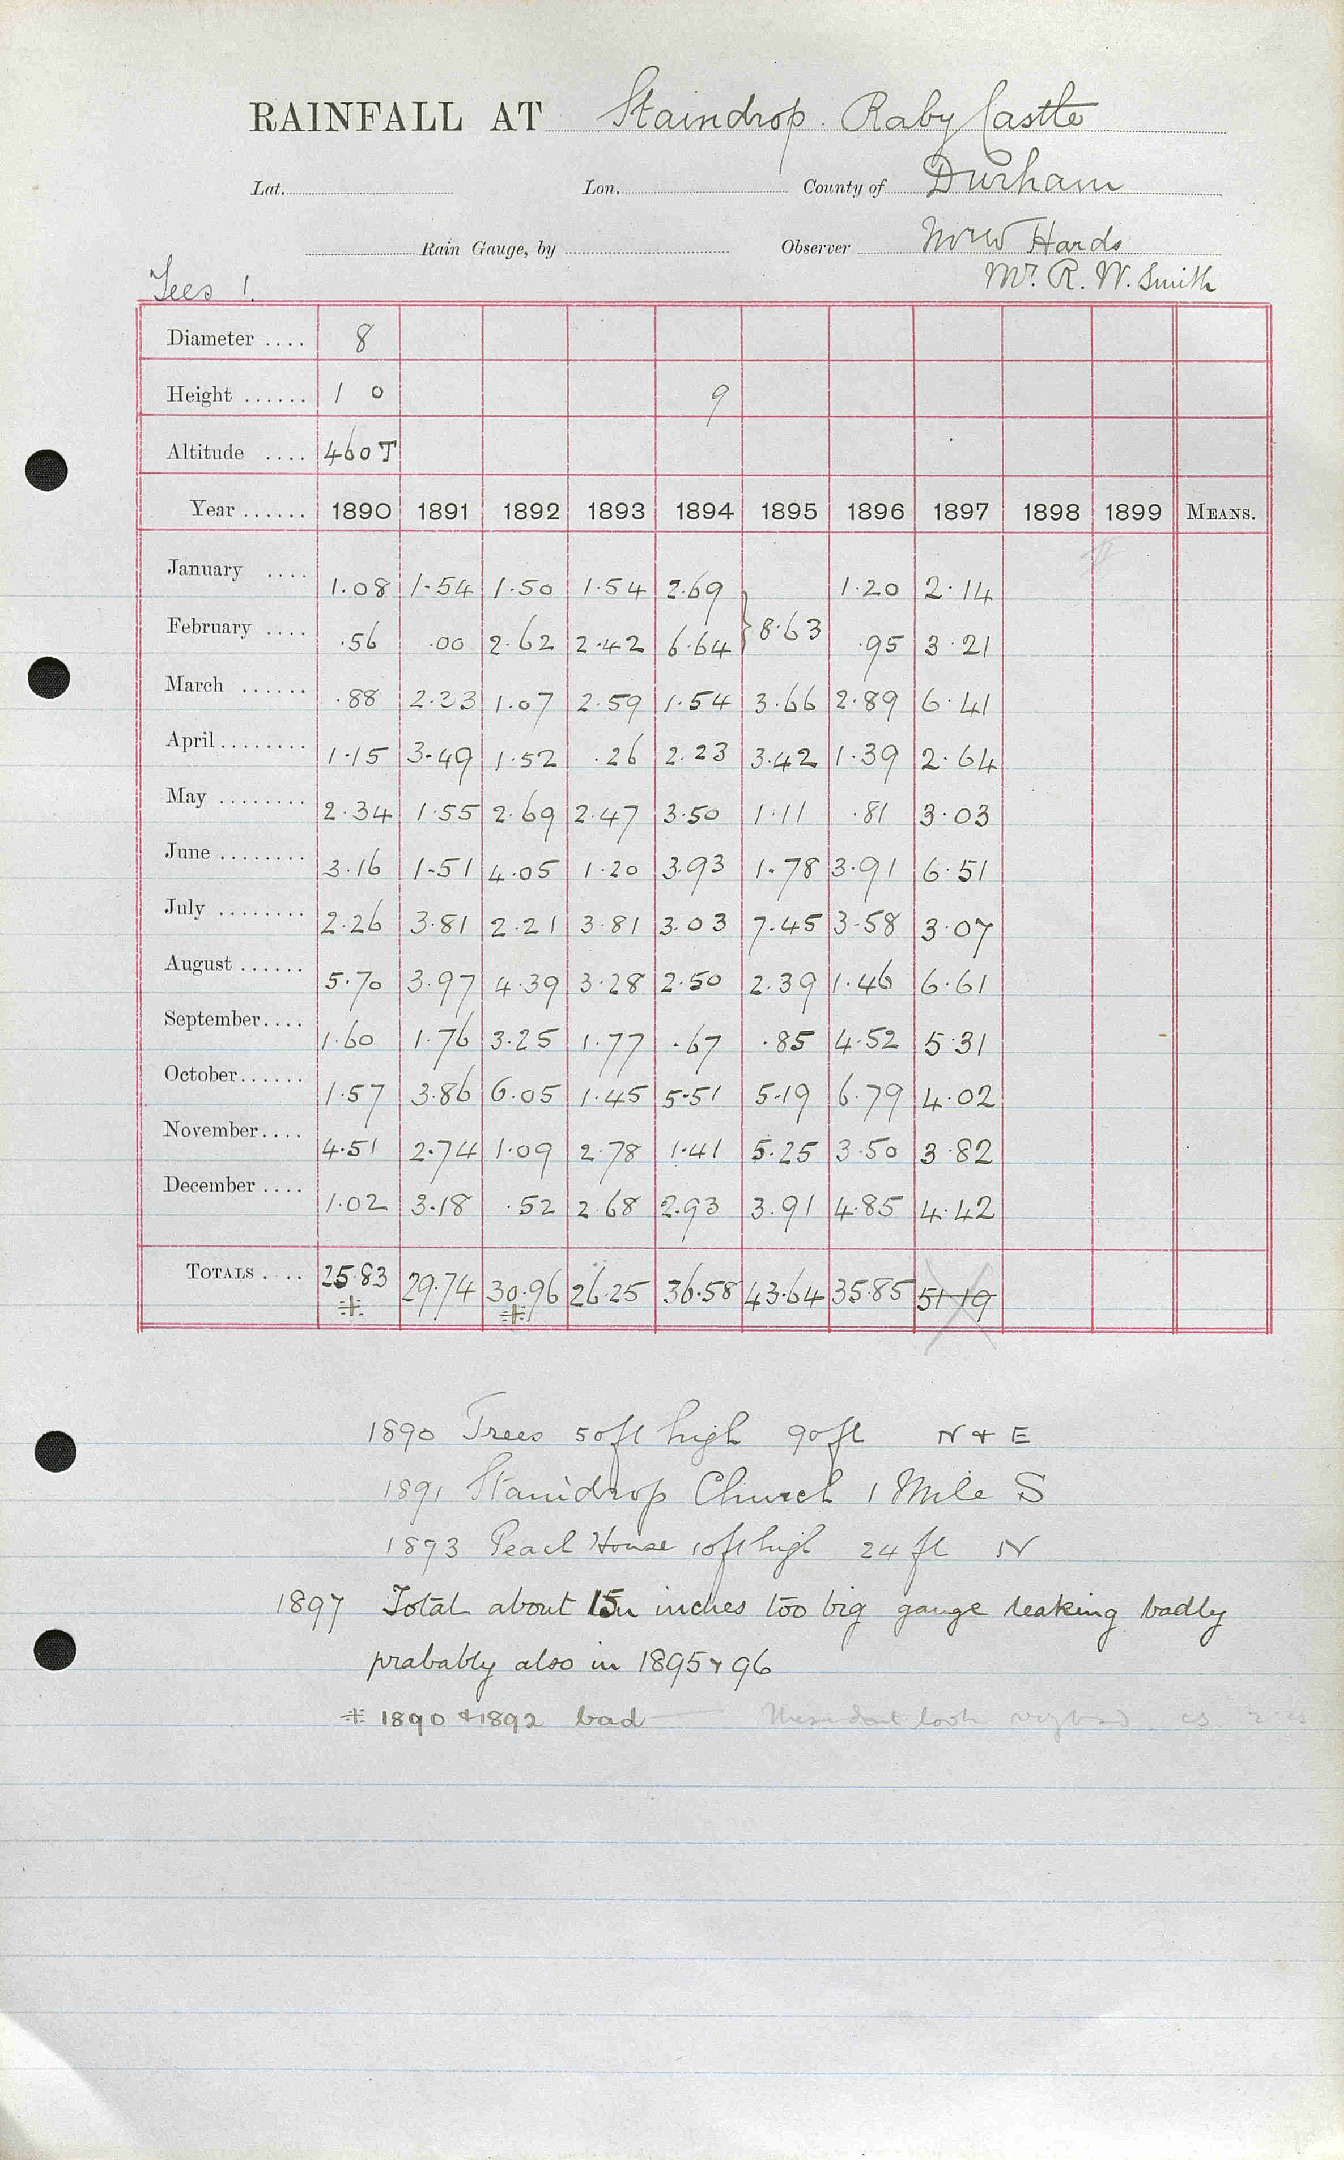 RAINFALL AT Staindrop. Raby Castle
Lat. Lon. County of Durham
Rain Gauge, by Observer Hards
Tees 1. Mr. R. W. Smith
Diameter .... 8
Height ...... 1 0 9
Altitude .... 460T
Year ...... 1890 1891 1892 1893 1894 1895 1896 1897 1898 1899 MEANS.
January .... 1.08 1.54 1.50 1.54 2.69 1.20 2.14
February .... .56 .00 2.62 2.42 6.64 } 8.63 .95 3.21
March ...... .88 2.23 1.07 2.59 1.54 3.66 2.89 6.41
April ........ 1.15 3.49 1.52 .26 2.23 3.42 1.39 2.64
May ........ 2.34 1.55 2.69 2.47 3.50 1.11 .81 3.03
June ........ 3.16 1.51 4.05 1.20 3.93 1.78 3.91 6.51
July ........ 2.26 3.81 2.21 3.81 3.03 7.45 3.58 3.07
August ...... 5.70 3.97 4.39 3.28 2.50 2.39 1.46 6.61
September .... 1.60 1.76 3.25 1.77 .67 .85 4.52 5.31
October ...... 1.57 3.86 6.05 1.45 5.51 5.19 6.79 4.02
November .... 4.51 2.74 1.09 2.78 1.41 5.25 3.50 3.82
December .... 1.02 3.18 .52 2.68 2.93 3.91 4.85 4.42
TOTALS .... 25.83 29.74 30.96 26.25 36.58 43.64 35.85 51.19
1890 Trees 50ft high 90ft N & E
1891 Staindrop Church 1 Mile S
1893 Peach House 10ft high 24 ft N
1897 Total about 15 inches too big gauge leaking badly
probably also in 1895 & 96
1890 & 1892 bad These dont look